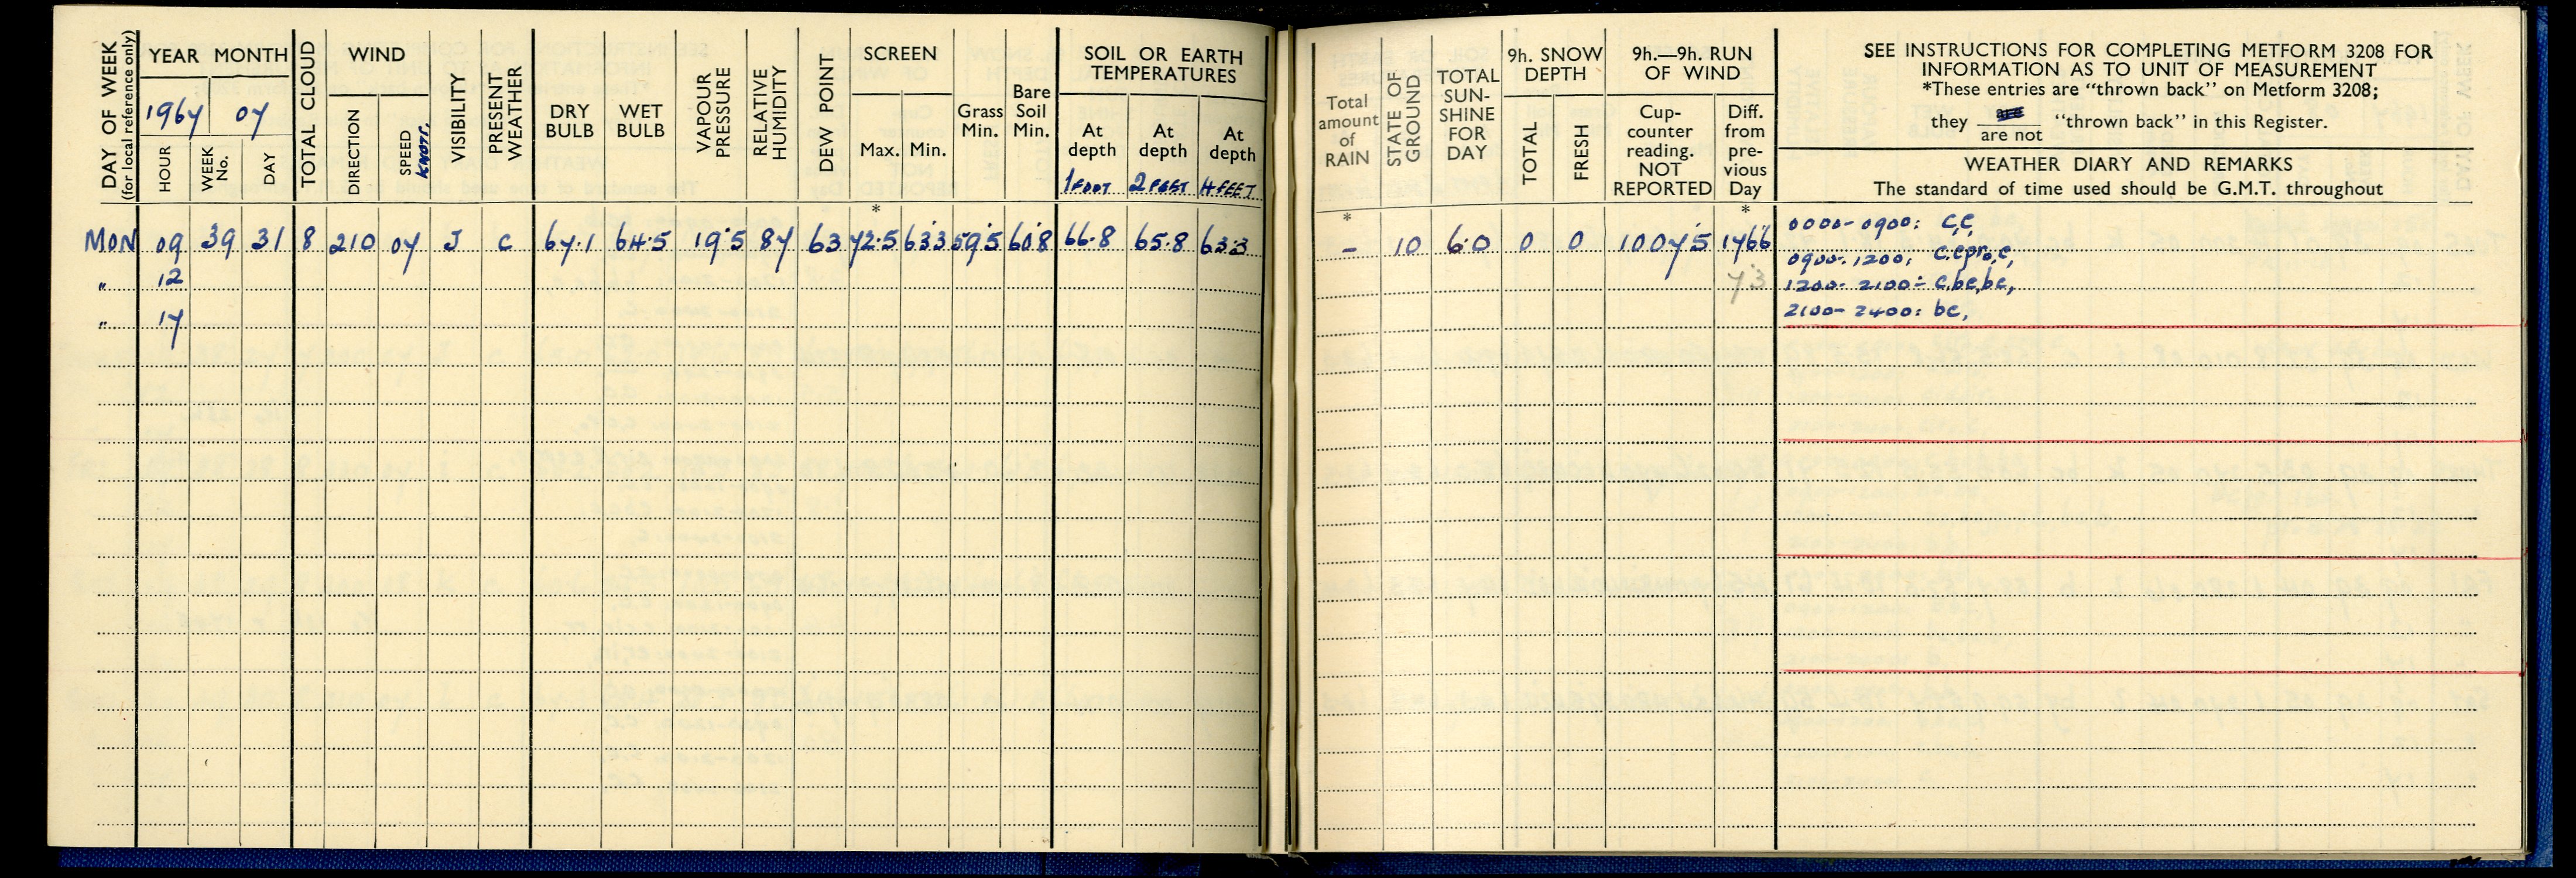 DAY OF WEEK
(for local reference only)
YEAR MONTH
1967 07
HOUR
WEEK No.
DAY
TOTAL CLOUD
WIND
DIRECTION
SPEED
KNOTS.
VISIBILITY
PRESENT WEATHER
DRY BULB
WET BULB
VAPOUR PRESSURE
RELATIVE HUMIDITY
DEW POINT
SCREEN
Max. Min.
Grass Min.
Bare Soil Min.
SOIL OR EARTH
TEMPERATURES
At depth
1 FOOT
At depth
2 FEET
At depth
4 FEET
Total amount of RAIN
STATE OF GROUND
TOTAL SUN-SHINE FOR DAY
9h. SNOW DEPTH
TOTAL
FRESH
9h.—9h. RUN OF WIND
Cup-counter reading. NOT REPORTED
Diff. from pre-vious Day
SEE INSTRUCTIONS FOR COMPLETING METFORM 3208 FOR
INFORMATION AS TO UNIT OF MEASUREMENT
*These entries are "thrown back" on Metform 3208;
they are / are not "thrown back" in this Register.
WEATHER DIARY AND REMARKS
The standard of time used should be G.M.T. throughout
* * *
MON 09 39 31 8 210 07 J C 67.1 64.5 19.5 87 63 72.5 63.3 59.5 60.8 66.8 65.8 63.3 – 10 6.0 0 0 10075 1766
" 12 7.3
" 17
0000-0900: c,c,
0900-1200: c,cpr₀,c,
1200-2100: c,bc,bc,
2100-2400: bc,